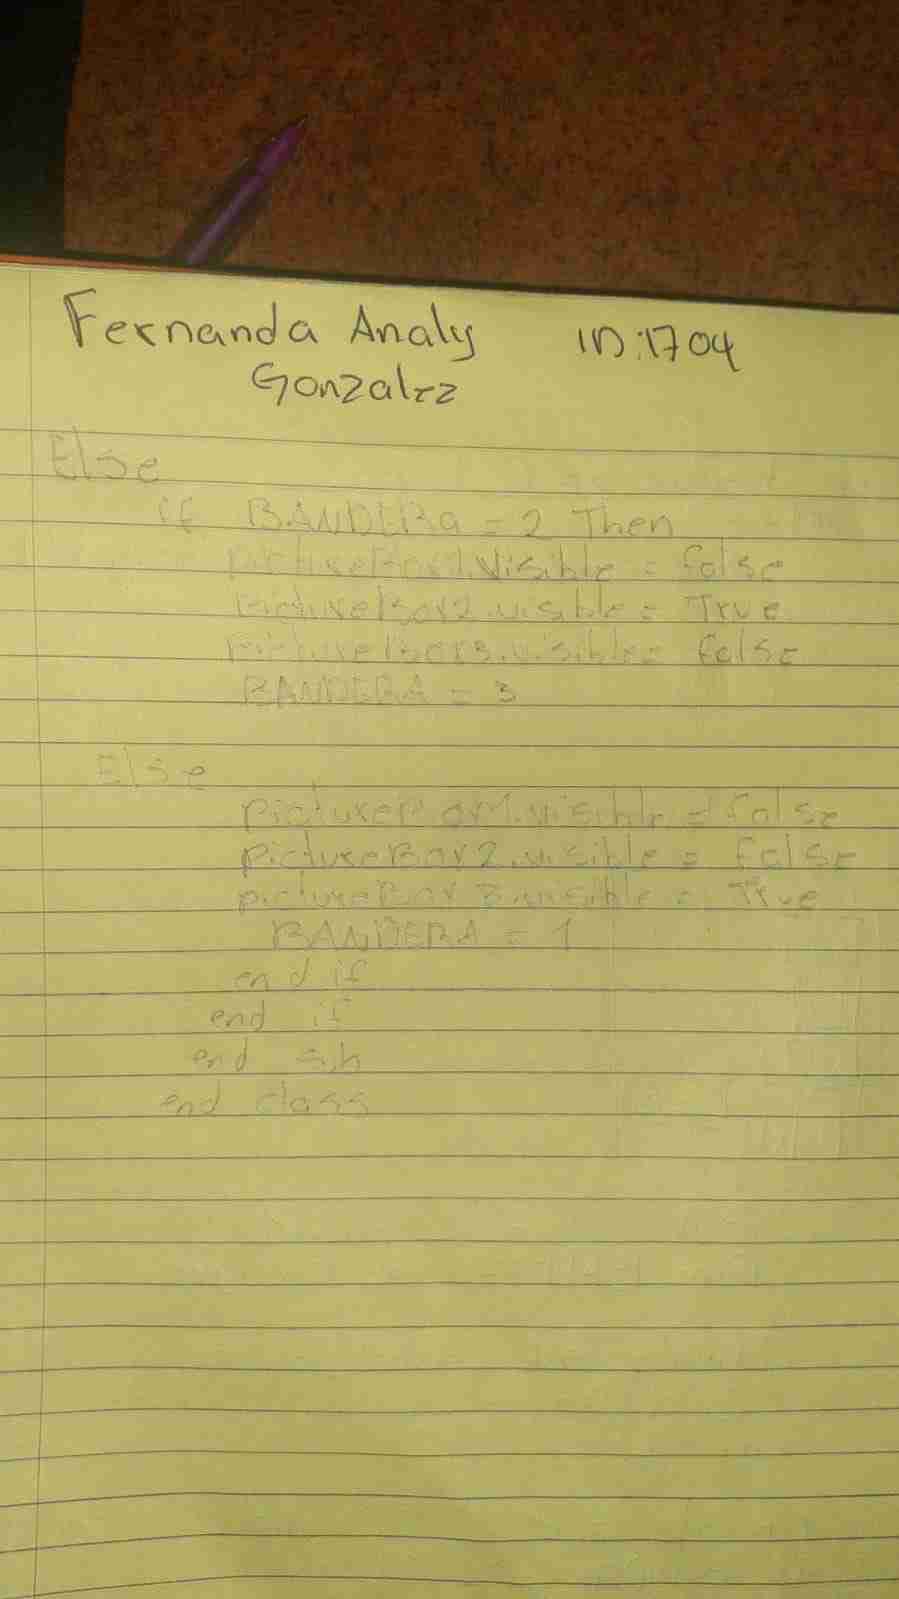 Fernanda Analy ID:1704
Gonzalez
Else
if BANDERa = 2 Then
pictureBox1.Visible = false
pictureBox2.visible = True
pictureBox3.visible = false
BANDERA = 3
Else
pictureBox1.visible = false
pictureBox2.visible = false
pictureBox3.visible = True
BANDERA = 1
end if
end if
end sub
end class